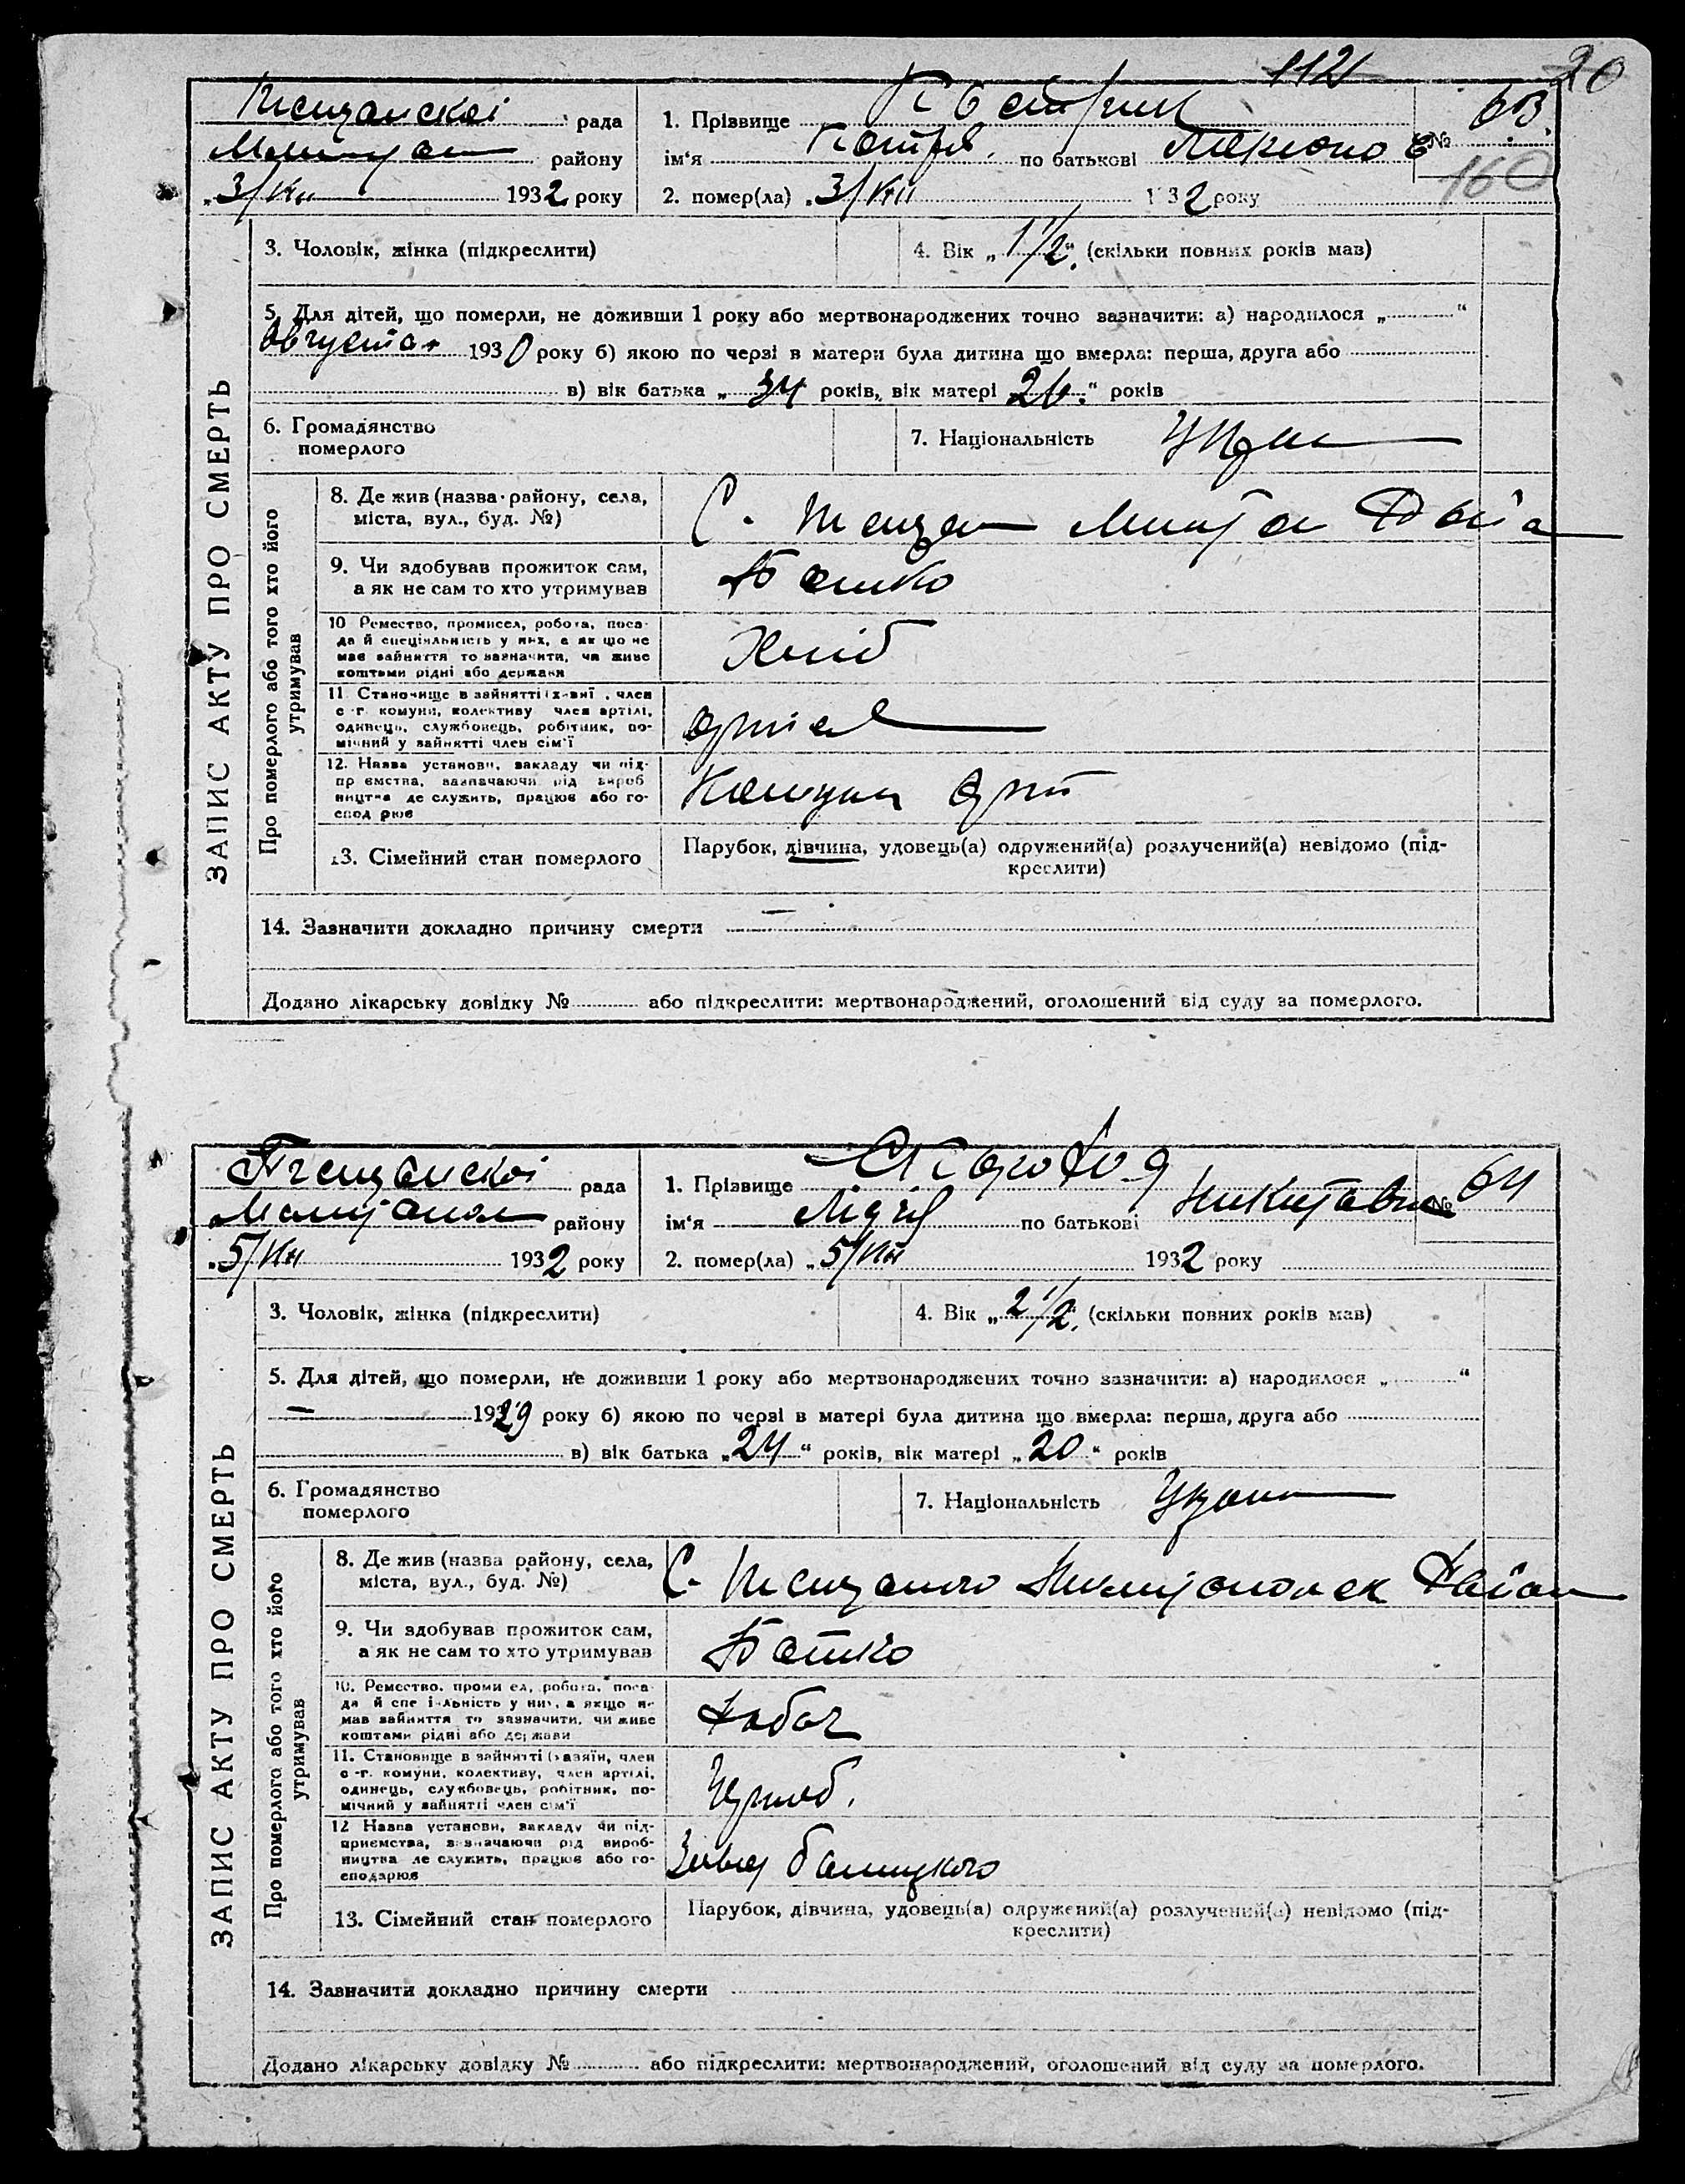 112 20
рада 1. Прізвище 63
району ім'я по батькові №
160
„3/ 1932 року 2. помер(ла) „3/ 1932 року
3. Чоловік, жінка (підкреслити) 4. Вік „1 1/2“ (скільки повних років мав)
5. Для дітей, що померли, не доживши 1 року або мертвонароджених точно зазначити: а) народилося „ “
Августа 1930 року б) якою по черзі в матери була дитина що вмерла: перша, друга або
в) вік батька „34 років, вік матері 26“ років
6. Громадянство
померлого
7. Національність
ЗАПИС АКТУ ПРО СМЕРТЬ
Про померлого або того хто його
утримував
8. Де жив (назва району, села,
міста, вул., буд. №)
С.
9. Чи здобував прожиток сам,
а як не сам то хто утримував
Батько
10 Ремество, промисел, робота, поса-
да й спеціяльність у них, а як що не
має зайняття то зазначити, чи живе
коштами рідні або держави
Хліб
11 Становище в зайнятті член
с-г. комуни, колективу член артілі,
одинець, службовець, робітник, по-
мічний у зайнятті член сім'ї
12. Назва установи, закладу чи під-
приємства, зазначаючи рід вироб
ництва де служить, працює або го-
сподарює
13. Сімейний стан померлого
Парубок, дівчина, удовець(а) одружений(а) розлучений(а) невідомо (під-
креслити)
14. Зазначити докладно причину смерти —
Додано лікарську довідку № або підкреслити: мертвонароджений, оголошений від суду за померлого.
рада 1. Прізвище 64
району ім'я Лідія по батькові Никитовна №
„5/ 1932 року 2. помер(ла) „5/ 1932 року
3. Чоловік, жінка (підкреслити) 4. Вік „2 1/2“ (скільки повних років мав)
5. Для дітей, що померли, не доживши 1 року або мертвонароджених точно зазначити: а) народилося „ “
— 1929 року б) якою по черзі в матері була дитина що вмерла: перша, друга або
в) вік батька „24“ років, вік матері „20“ років
6. Громадянство
померлого
7. Національність
ЗАПИС АКТУ ПРО СМЕРТЬ
Про померлого або того хто його
утримував
8. Де жив (назва району, села,
міста, вул., буд. №)
С.
9. Чи здобував прожиток сам,
а як не сам то хто утримував
Батько
10. Ремество, промисел, робота, поса-
да й спеціяльність у них, а якщо не
має зайняття то зазначити, чи живе
коштами рідні або держави
11. Становище в зайнятті (хазяїн, член
с-г. комуни, колективу, член артілі,
одинець, службовець, робітник, по-
мічний у зайнятті член сім'ї
12 Назва установи, закладу чи під-
приємства, зазначаючи рід вироб-
ництва де служить, працює або го-
сподарює
13. Сімейний стан померлого
Парубок, дівчина, удовець(а) одружений(а) розлучений(а) невідомо (під-
креслити)
14. Зазначити докладно причину смерти
Додано лікарську довідку № або підкреслити: мертвонароджений, оголошений від суду за померлого.